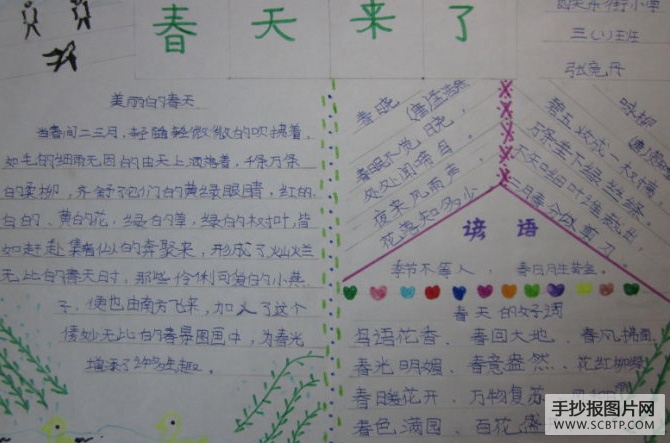 春天来了
东街小学
三(1)班
美丽的春天
当春间二三月,轻微微的吹拂着,
如毛的细雨无因的由天上洒落着,千条万条
的柔柳,齐舒它们的黄绿眼睛,红的
白的、黄的花,绿的草,绿的树叶,皆
如赶赴集者似的奔聚来,形成了灿烂
无比的春天时,那些伶俐可爱的小燕
子,便也由南方飞来,加入了这个
隽妙无比的春景图画中,为春光
增添了许多生趣。
春晓 (唐)孟浩然
春眠不觉晓,
处处闻啼鸟。
夜来风雨声,
花落知多少。
咏柳
(唐)
碧玉妆成一树高,
万条垂下绿丝绦。
不知细叶谁裁出,
二月春分似剪刀。
谚语
季节不等人,春日胜黄金。
春天的好词
鸟语花香、春回大地、春风拂面、
春光明媚、春意盎然、花红柳绿
春暖花开、万物复苏
春色满园、百花
手抄报图片网
WWW.SCBTP.COM